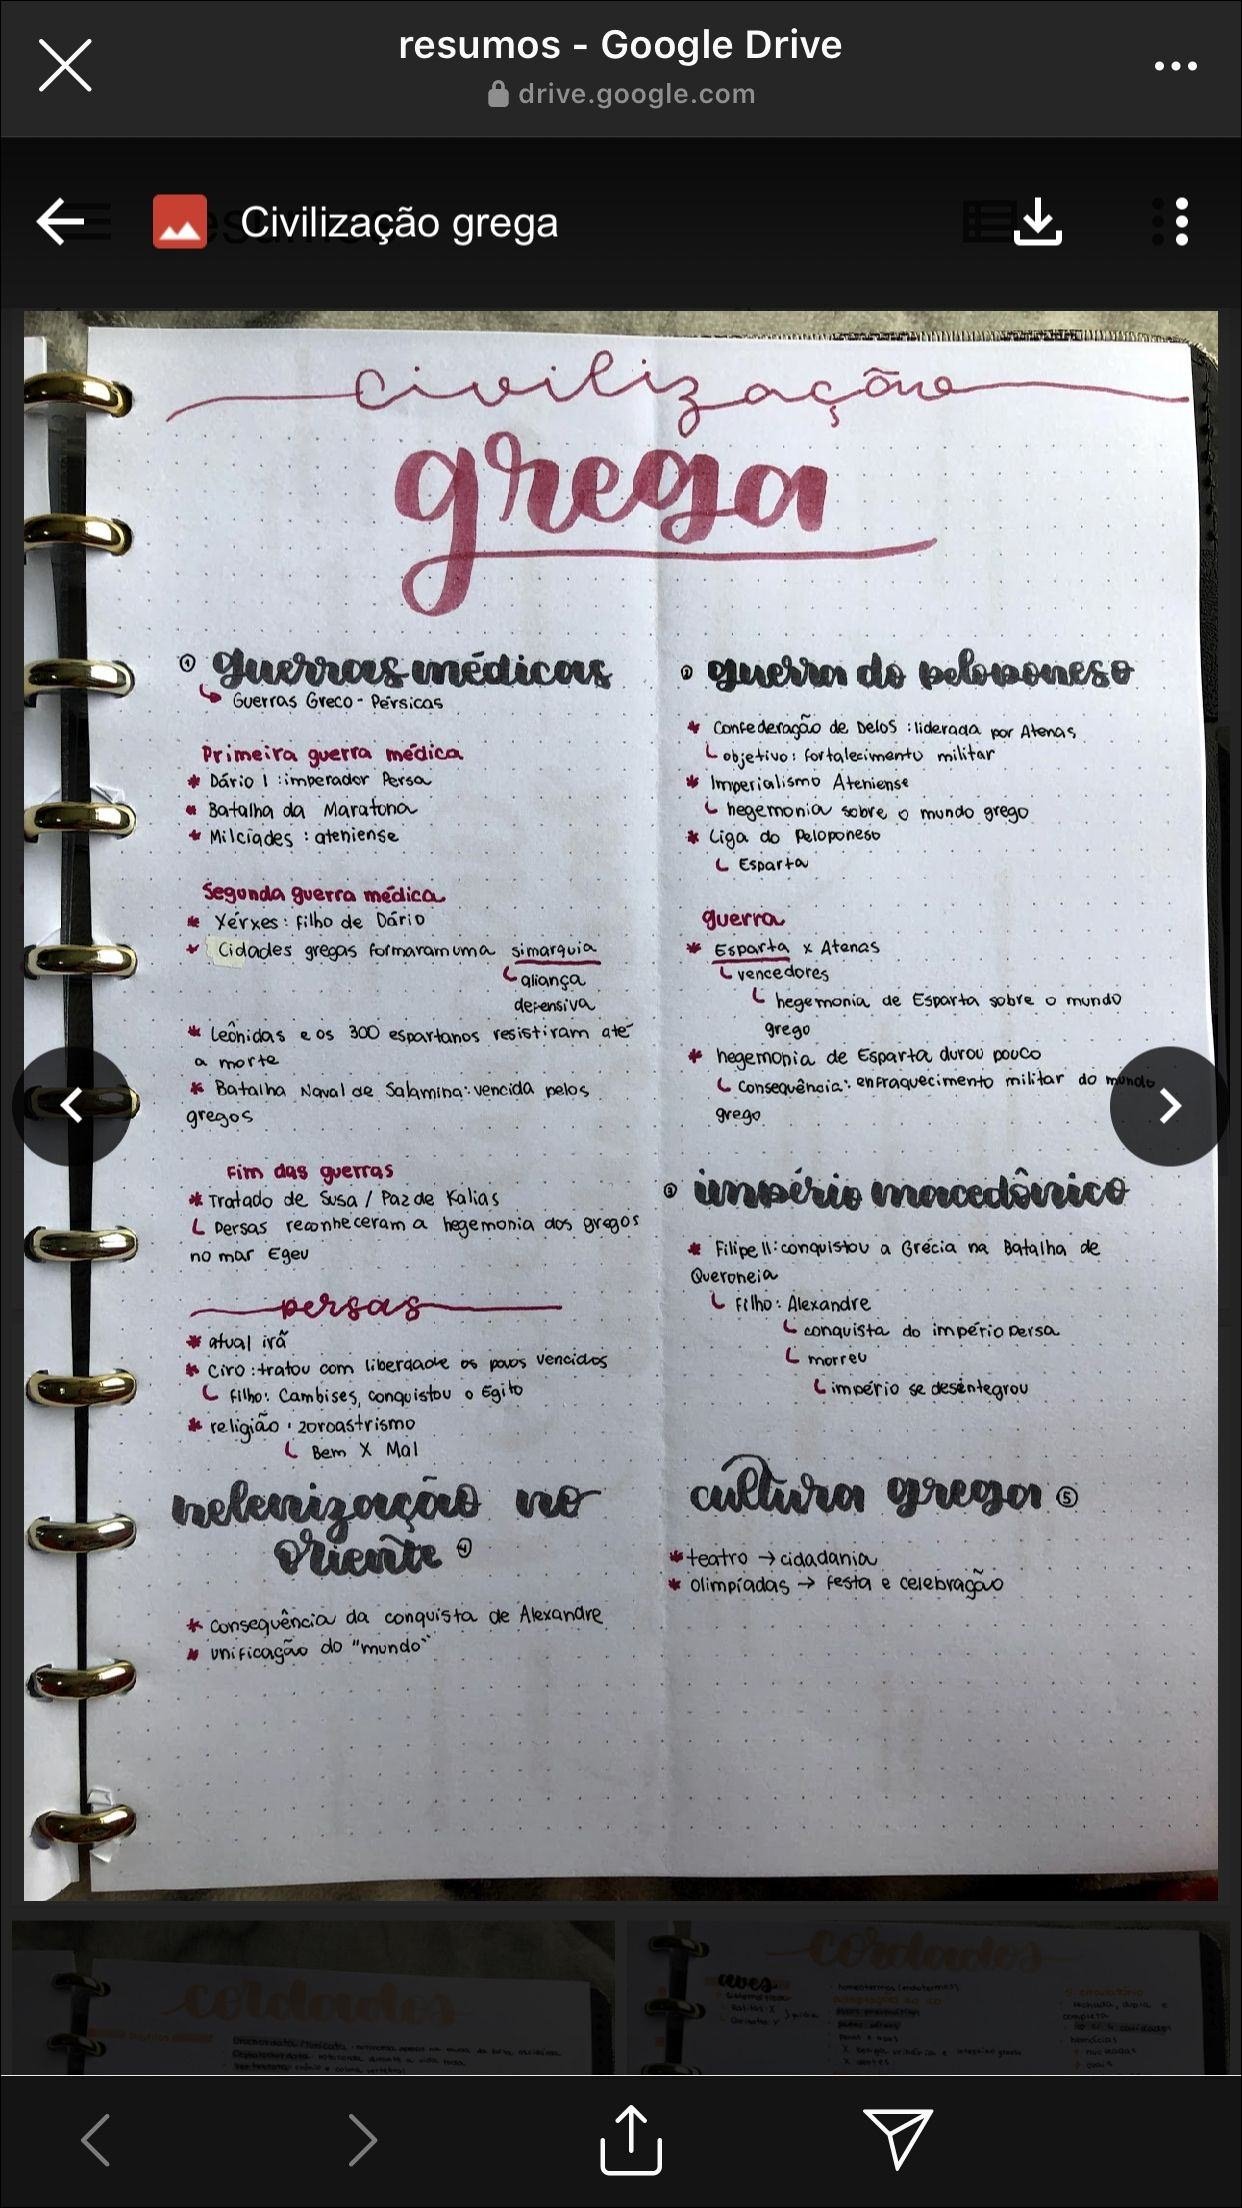 resumos - Google Drive
drive.google.com
Civilização grega
civilização
grega
① guerras médicas
Guerras Greco-Pérsicas
Primeira guerra médica
* Dário I : imperador Persa
* Batalha da Maratona
* Milcíades : ateniense
Segunda guerra médica
* Xérxes : filho de Dário
* Cidades gregas formaram uma simarquia
aliança
defensiva
* Leônidas e os 300 espartanos resistiram até
a morte
* Batalha Naval de Salamina: vencida pelos
gregos
Fim das guerras
* Tratado de Susa / Paz de Kalias
Persas reconheceram a hegemonia dos gregos
no mar Egeu
persas
* atual irã
* Ciro : tratou com liberdade os povos vencidos
filho: Cambises, conquistou o Egito
* religião : zoroastrismo
Bem X Mal
helenização no
oriente ④
* consequência da conquista de Alexandre
* unificação do "mundo"
② guerra do peloponeso
* Confederação de Delos : liderada por Atenas
objetivo: fortalecimento militar
* Imperialismo Ateniense
hegemonia sobre o mundo grego
* Liga do Peloponeso
Esparta
guerra
* Esparta x Atenas
vencedores
hegemonia de Esparta sobre o mundo
grego
* hegemonia de Esparta durou pouco
Consequência: enfraquecimento militar do mundo
grego
③ império macedônico
* Filipe II: conquistou a Grécia na Batalha de
Queroneia
Filho: Alexandre
conquista do império Persa
morreu
império se desintegrou
cultura grega ⑤
* teatro → cidadania
* olimpíadas → festa e celebração
cordados
cordados
aves